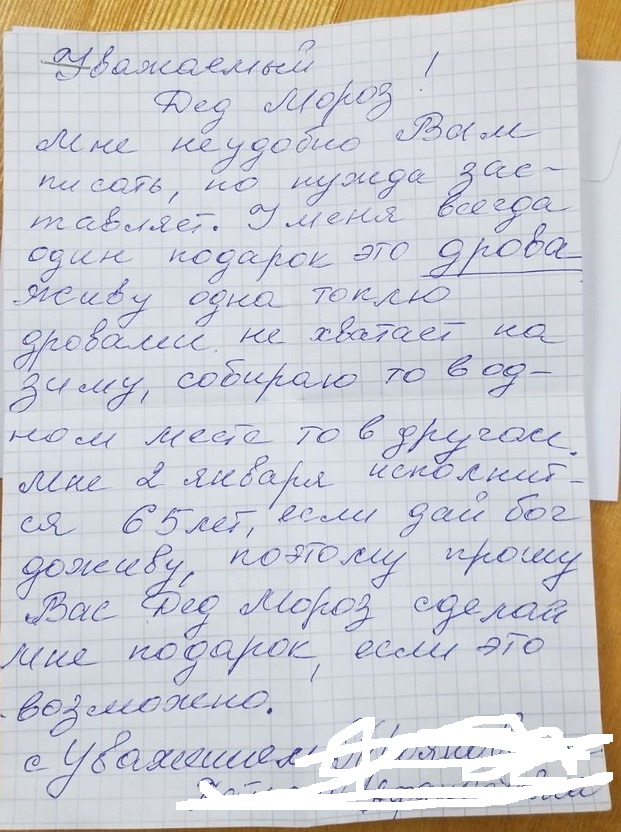 Уважаемый !
Дед Мороз
Мне неудобно Вам
писать, но нужда зас-
тавляет. У меня всегда
один подарок это дрова
живу одна топлю
дровами не хватает на
зиму, собираю то в од-
ном месте то в другом.
Мне 2 января исполнит-
ся 65 лет, если дай бог
доживу, поэтому прошу
Вас Дед Мороз сделай
мне подарок, если это
возможно.
с Уважением